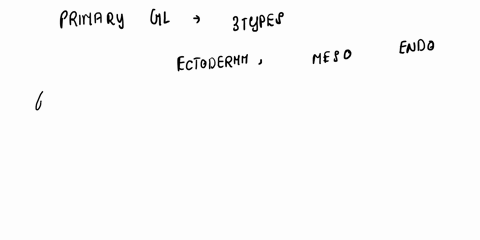 PRIMARY GL → 3TYPES
ECTODERM, MESO ENDO